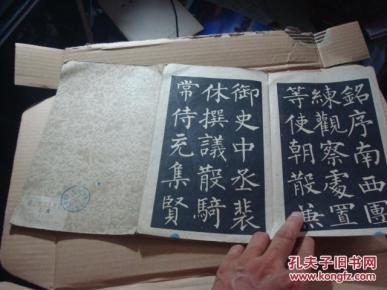 銘序南西團
練觀察處置
等使朝散兼
御史中丞裴
休撰議散騎
常侍充集賢
孔夫子旧书网
KONGFZ.COM